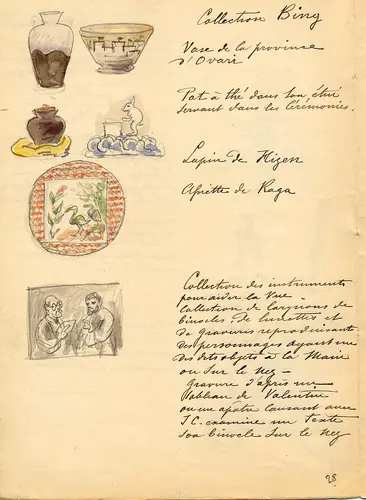 Collection Bing
Vase de la province
d'Ovari
Pot à thé dans son étui
servant dans les Cérémonies.
Lapin de Hizen
Assiette de Kaga
Collection des instruments
pour aider la Vue -
Collection de Lorgnons de
binocles de lunettes et
de gravures reproduisant
des personnages ayant une
des dits objets à la Main
ou sur le nez -
gravure d'après un
Tableau de Valentin
ou un apôtre causant avec
J.C. examine un Texte
son binocle sur le nez
28